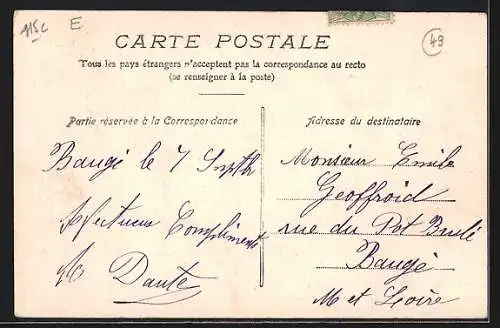 115c E
49
CARTE POSTALE
Tous les pays étrangers n'acceptent pas la correspondance au recto
(se renseigner à la poste)
Partie réservée à la Correspondance
Baugé le 7
Compliments
Dante
Adresse du destinataire
Monsieur Emile
Geoffroid
rue du Pot Brulé
Baugé
M et Loire